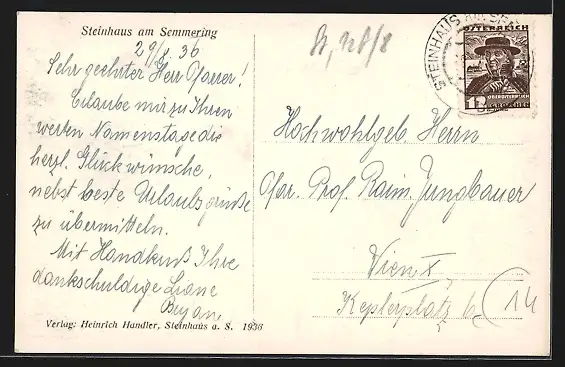 Steinhaus am Semmering
29/8. 36
Sehr geehrter Herr Pfarrer!
Erlaube mir zu Ihren
werten Namenstage die
herzl. Glückwünsche,
nebst beste Urlaubsgrüße
zu übermitteln.
Mit Handkuß Ihre
dankschuldige Liane
Verlag: Heinrich Handler, Steinhaus a. S. 1936
STEINHAUS AM SEM
ÖSTERREICH
12
OBERÖSTERREICH
Hochwohlgeb. Herrn
Pfar. Prof. Raim. Jungbauer
Wien X
Keplerplatz 6
14